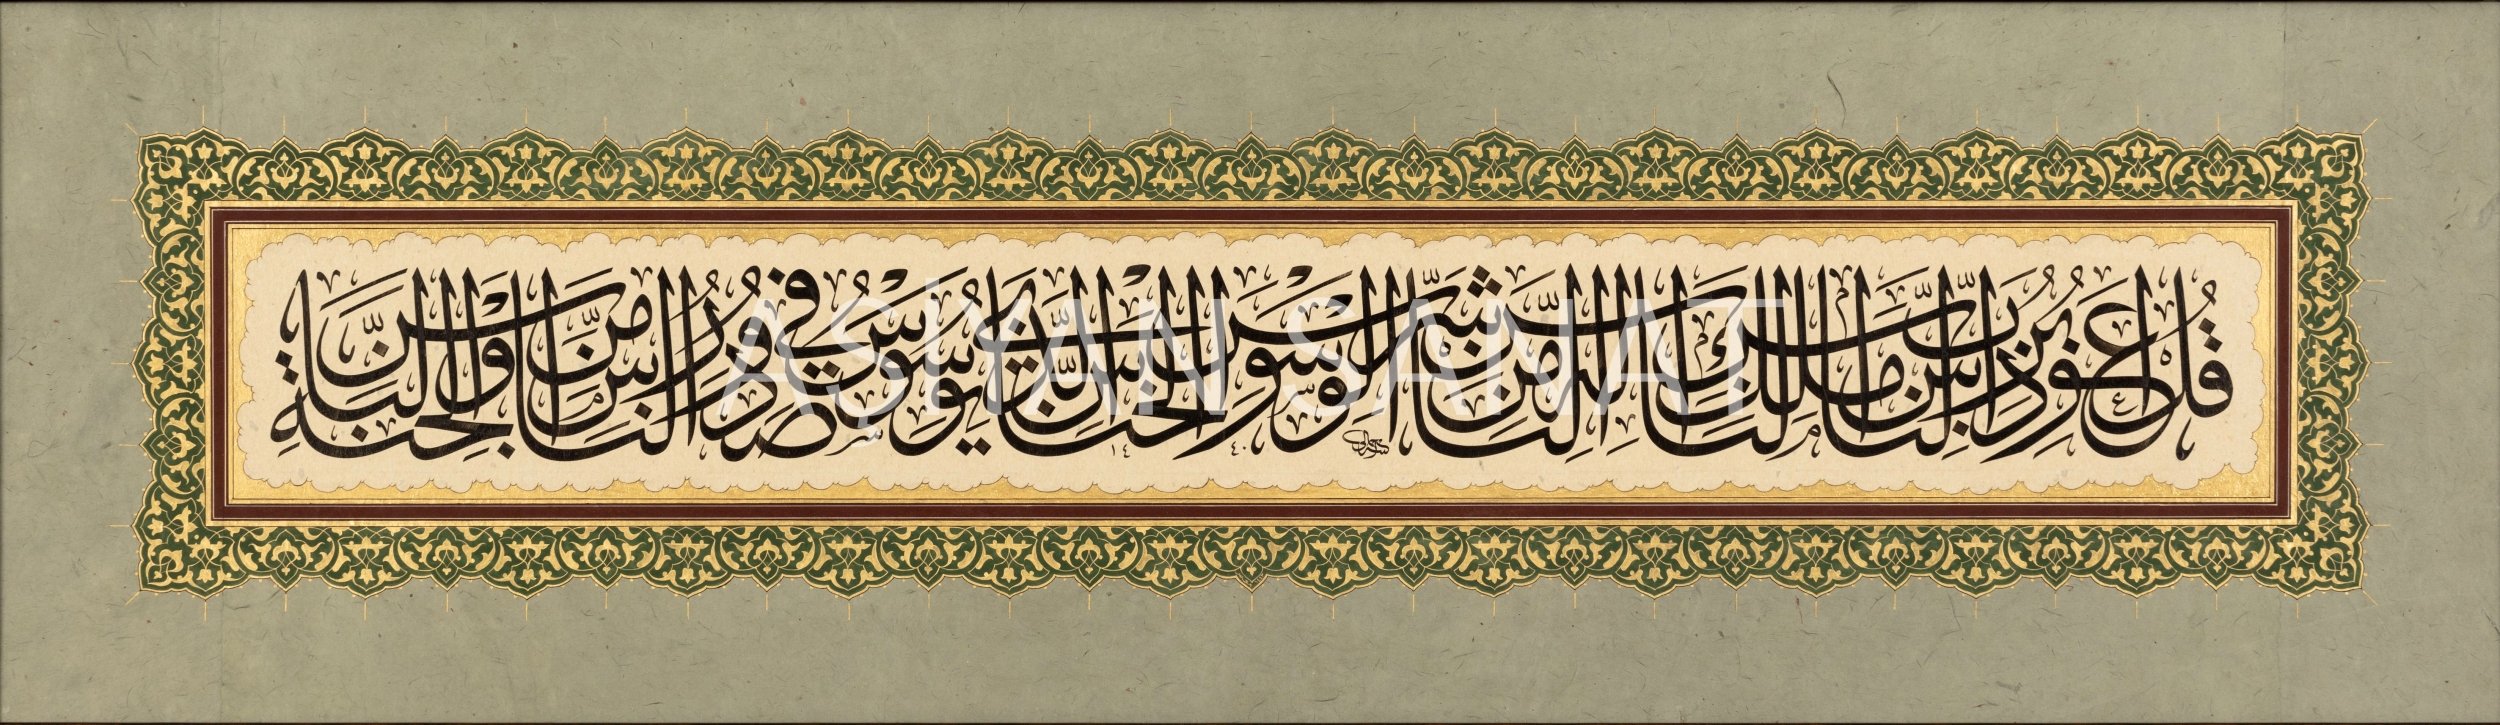 قُلْ أَعُوذُ بِرَبِّ النَّاسِ مَلِكِ النَّاسِ إِلَهِ النَّاسِ مِنْ شَرِّ الْوَسْوَاسِ الْخَنَّاسِ الَّذِي يُوَسْوِسُ فِي صُدُورِ النَّاسِ مِنَ الْجِنَّةِ وَالنَّاسِ
١٤٤٠
ASİYAN SANAT